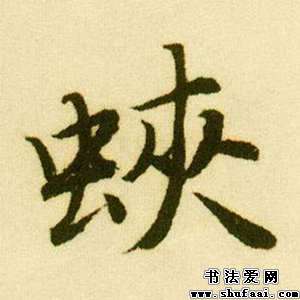 蛺
书法爱网
www.shufaai.com